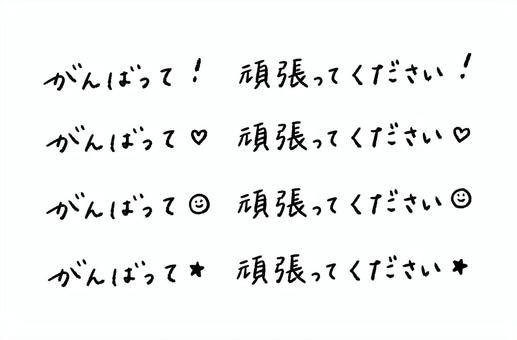 がんばって! 頑張ってください!
がんばって♡ 頑張ってください♡
がんばって☺ 頑張ってください☺
がんばって★ 頑張ってください★